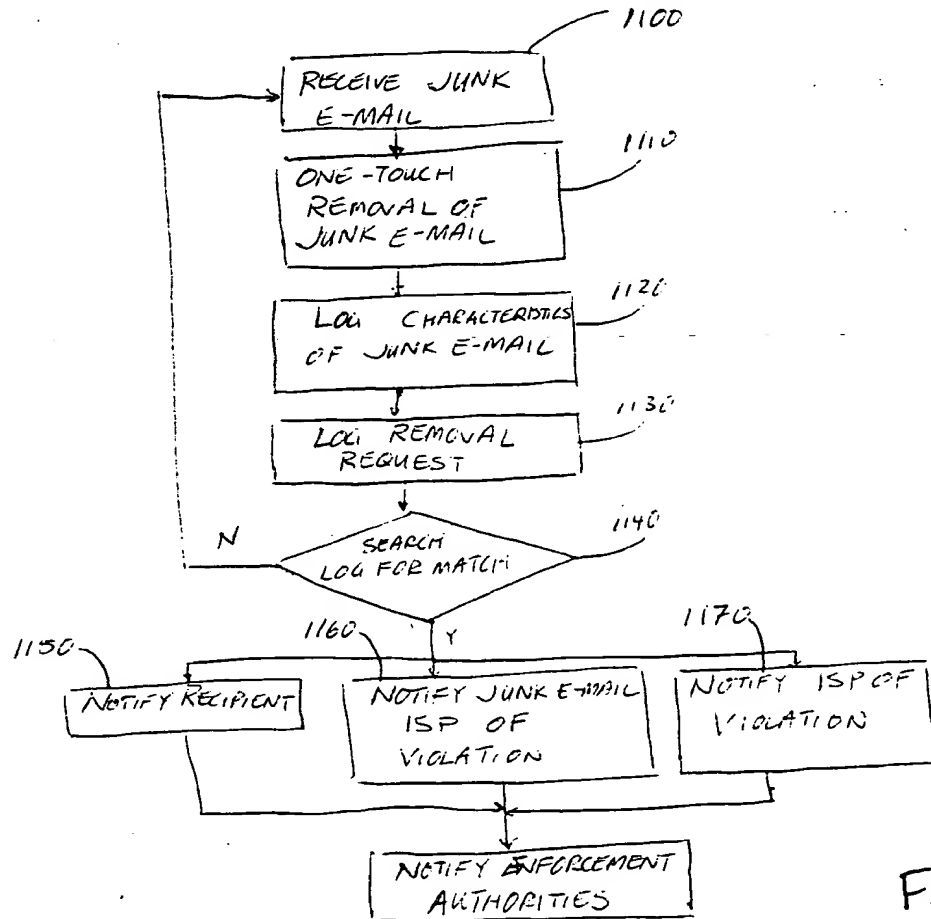 1100
RECEIVE JUNK
E-MAIL
1110
ONE-TOUCH
REMOVAL OF
JUNK E-MAIL
1120
LOG CHARACTERISTICS
OF JUNK E-MAIL
1130
LOG REMOVAL
REQUEST
1140
N
SEARCH
LOG FOR MATCH
Y
1150
1160
1170
NOTIFY RECIPIENT
NOTIFY JUNK E-MAIL
ISP OF
VIOLATION
NOTIFY ISP OF
VIOLATION
NOTIFY ENFORCEMENT
AUTHORITIES